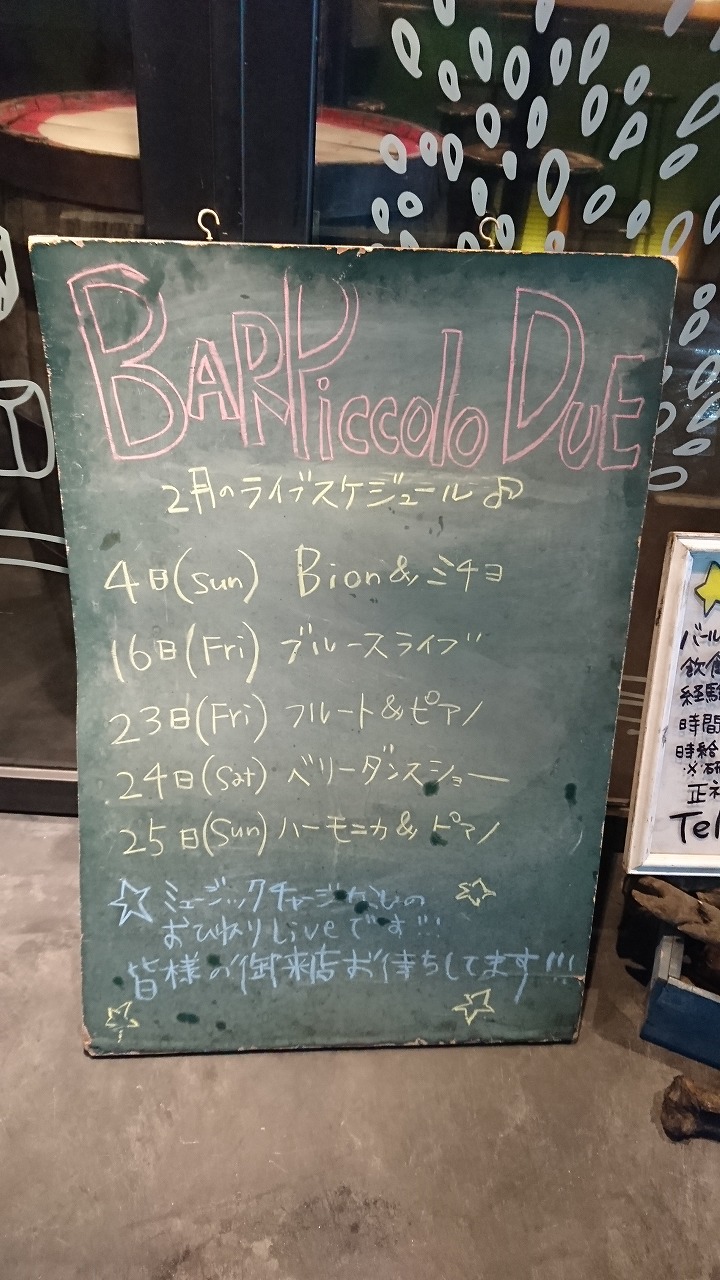 BAR Piccolo DUE
2月のライブスケジュール♪
4日(sun) Bion&ミチヨ
16日(Fri) ブルースライブ
23日(Fri) フルート&ピアノ
24日(Sat) ベリーダンスショー
25日(Sun) ハーモニカ&ピアノ
☆ミュージックチャージなしの
おひねりLiveです!!!
皆様の御来店お待ちしてます!!!
バール
飲食
経験
時間
時給
※研
正社
Tel